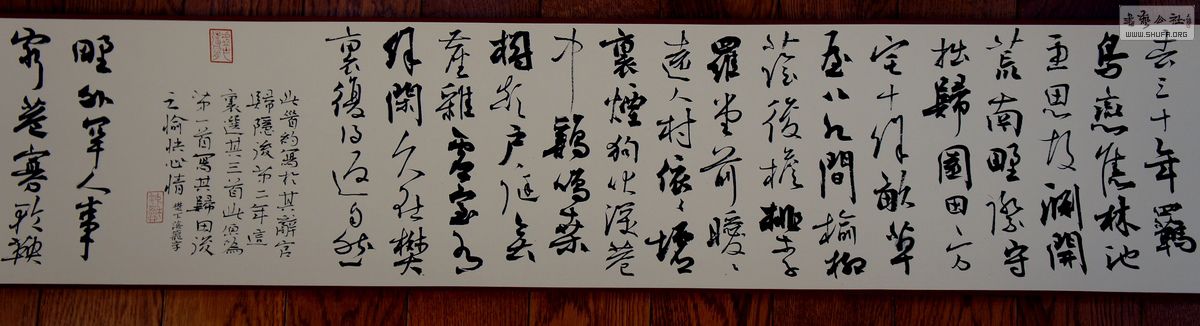 去三十年羈
鳥戀舊林池
魚思故淵開
荒南野際守
拙歸園田〻方
宅十餘畝草
屋八九間榆柳
蔭後檐桃李
羅堂前曖〻
遠人村依〻墟
裏煙狗吠深巷
中鷄鳴桑
樹顛戶庭無
塵雜虛室有
餘閑久在樊
裏復得返自然
此首約寫於其辭官
歸隱後第二年這
裏選其三首此原為
第一首寫其歸田後
之愉快心情
野外罕人事
窮巷寡輪鞅
書藝公社
WWW.SHUFA.ORG